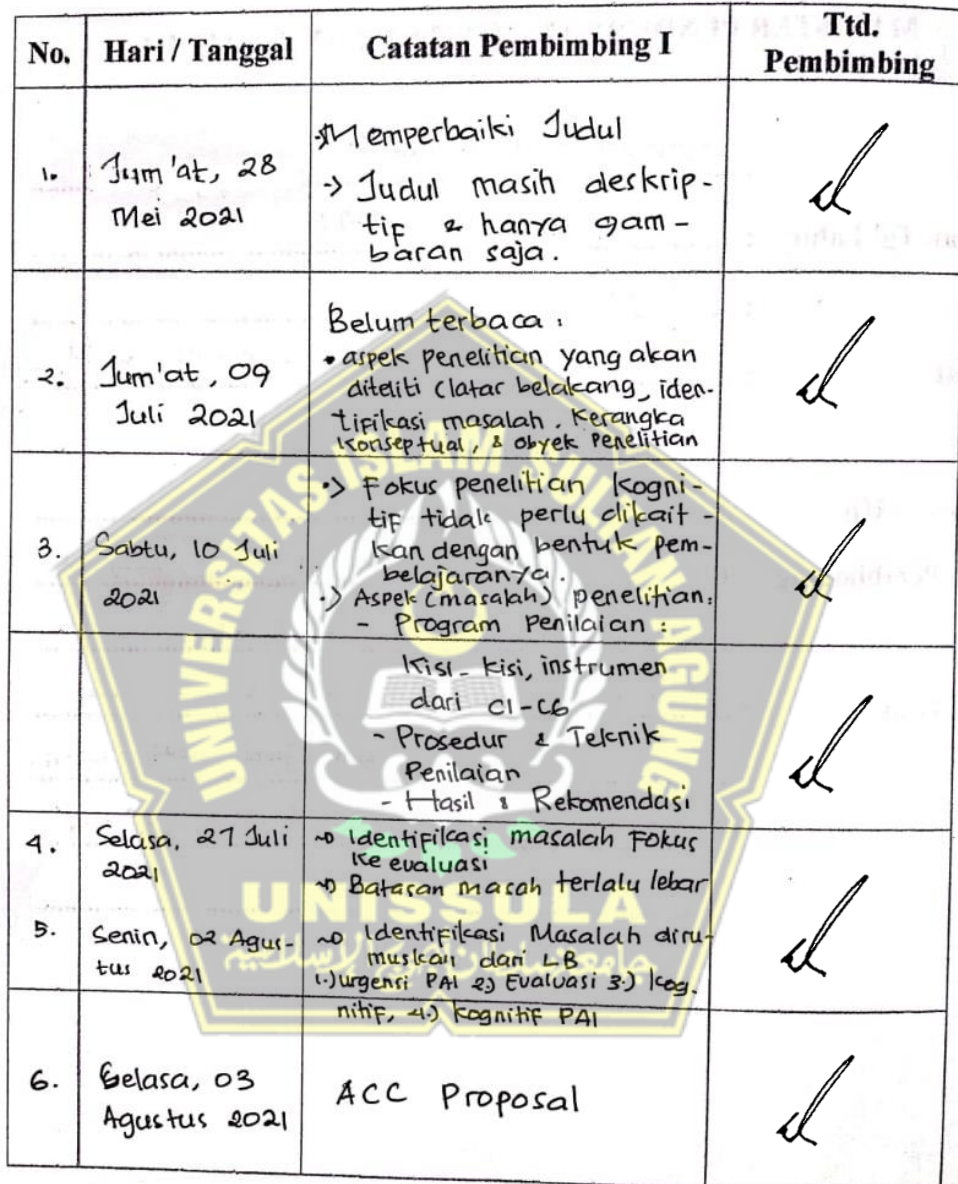 No. Hari / Tanggal Catatan Pembimbing I Ttd. Pembimbing
1. Jum'at, 28 Mei 2021
Memperbaiki Judul
-> Judul masih deskrip-
tif & hanya gam-
baran saja.
2. Jum'at, 09 Juli 2021
Belum terbaca :
• aspek penelitian yang akan
diteliti (latar belakang, iden-
tifikasi masalah, Kerangka
Konseptual, & obyek Penelitian
3. Sabtu, 10 Juli 2021
•> Fokus penelitian Kogni-
tif tidak perlu dikait-
kan dengan bentuk pem-
belajaranya.
•> Aspek (masalah) penelitian:
- Program Penilaian :
Kisi-kisi, instrumen
dari C1-C6
- Prosedur & Teknik
Penilaian
- Hasil & Rekomendasi
4. Selasa, 27 Juli 2021
~> Identifikasi masalah Fokus
ke evaluasi
~> Batasan masah terlalu lebar
5. Senin, 02 Agus-
tus 2021
~> Identifikasi Masalah diru-
muskan dari LB
1.) urgensi PAI 2.) Evaluasi 3.) Kog-
nitif, 4.) Kognitif PAI
6. Selasa, 03
Agustus 2021
ACC Proposal
UNIVERSITAS ISLAM SULTAN AGUNG
UNISSULA
جامعة سلطان أجونج الإسلامية